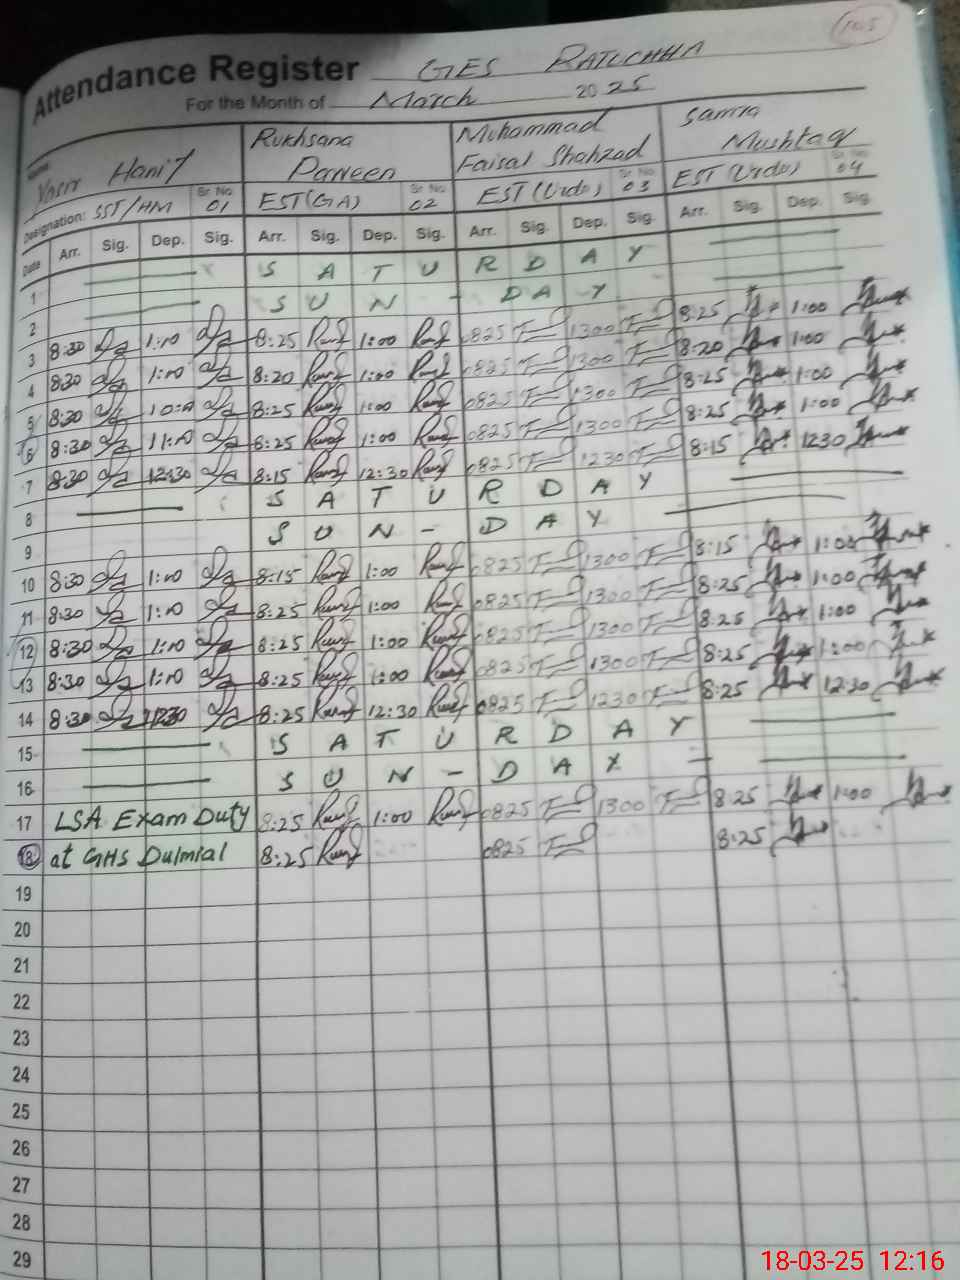 Attendance Register GES RATUCHHA
For the Month of March 2025
Name Yasir Hanif Rukhsana Parveen Muhammad Faisal Shahzad Samra Mushtaq
Designation: SST/HM Sr No 01 EST(GA) Sr No 02 EST(Urdo) Sr No 03 EST(Urdo) Sr No 04
Date Arr. Sig. Dep. Sig. Arr. Sig. Dep. Sig. Arr. Sig. Dep. Sig. Arr. Sig. Dep. Sig.
1 S A T U R D A Y
2 S U N - D A Y
3 8:30 1:00 8:25 1:00 0825 1300 8:25 1:00
4 8:30 1:00 8:20 1:00 0825 1300 8:20 1:00
5 8:30 10:00 8:25 1:00 0825 1300 8:25 1:00
6 8:30 11:00 8:25 1:00 0825 1300 8:25 1:00
7 8:30 12:30 8:15 12:30 0825 1230 8:15 1230
8 S A T U R D A Y
9 S U N - D A Y
10 8:30 1:00 8:15 1:00 0825 1300 8:15 1:00
11 8:30 1:00 8:25 1:00 0825 1300 8:25 1:00
12 8:30 1:00 8:25 1:00 0825 1300 8:25 1:00
13 8:30 1:00 8:25 1:00 0825 1300 8:25 1:00
14 8:30 1230 8:25 12:30 0825 1230 8:25 12:30
15 S A T U R D A Y
16 S U N - D A Y
17 LSA Exam Duty 8:25 1:00 0825 1300 8:25 1:00
18 at GHS Dulmial 8:25 0825 8:25
19
20
21
22
23
24
25
26
27
28
29
18-03-25 12:16